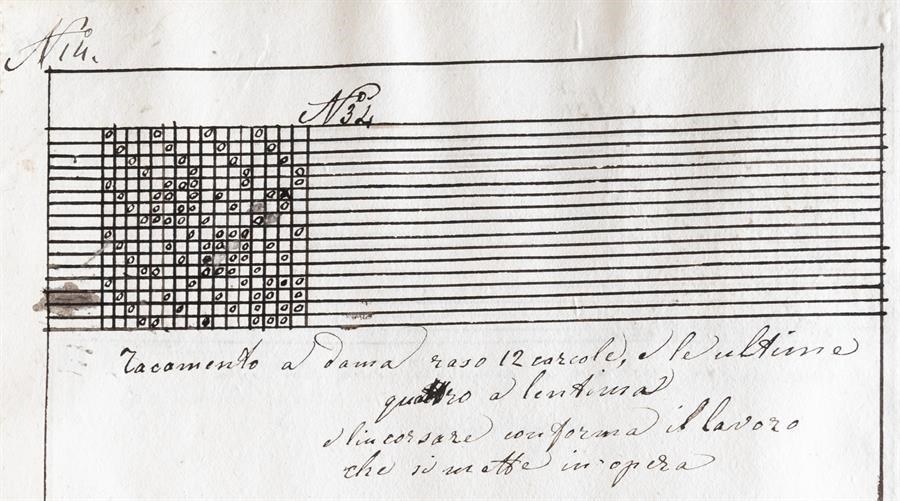 No 14.
No 34
Tacamento a dama raso 12 carcole, e le ultime
quattro a lentima
e lincorsare conforma il lavoro
che si mette in opera